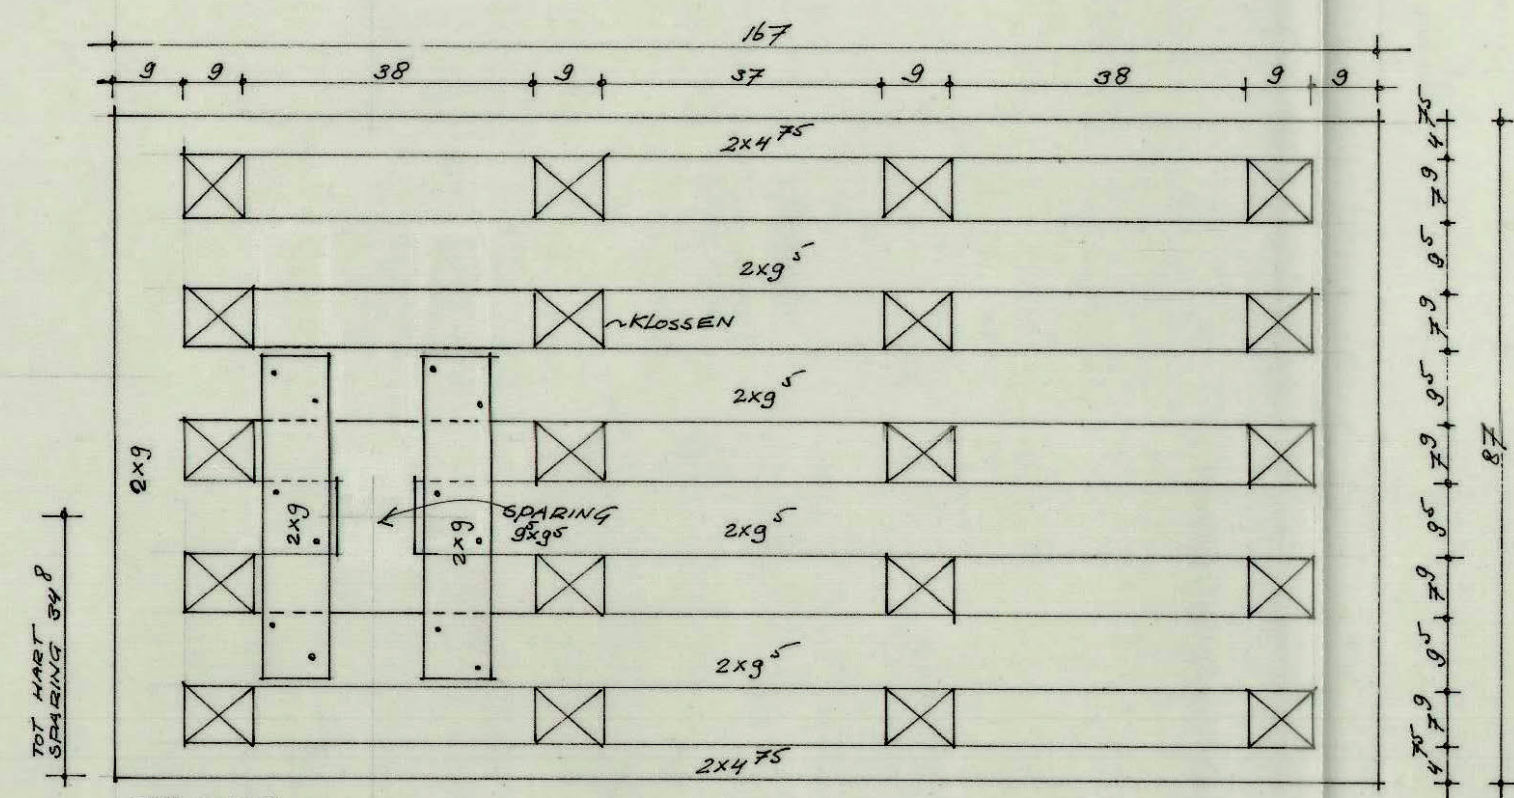 167
9 9 38 9 37 9 38 9 9
2x4⁷⁵
2x9⁵
~KLOSSEN
2x9⁵
2x9
2x9
2x9
SPARING
9⁵x9⁵
2x9⁵
2x9⁵
2x4⁷⁵
TOT HART
SPARING 34⁸
4⁷⁵ 7⁹ 9⁵ 7⁹ 9⁵ 7⁹ 9⁵ 7⁹ 9⁵ 7⁹ 4⁷⁵
87